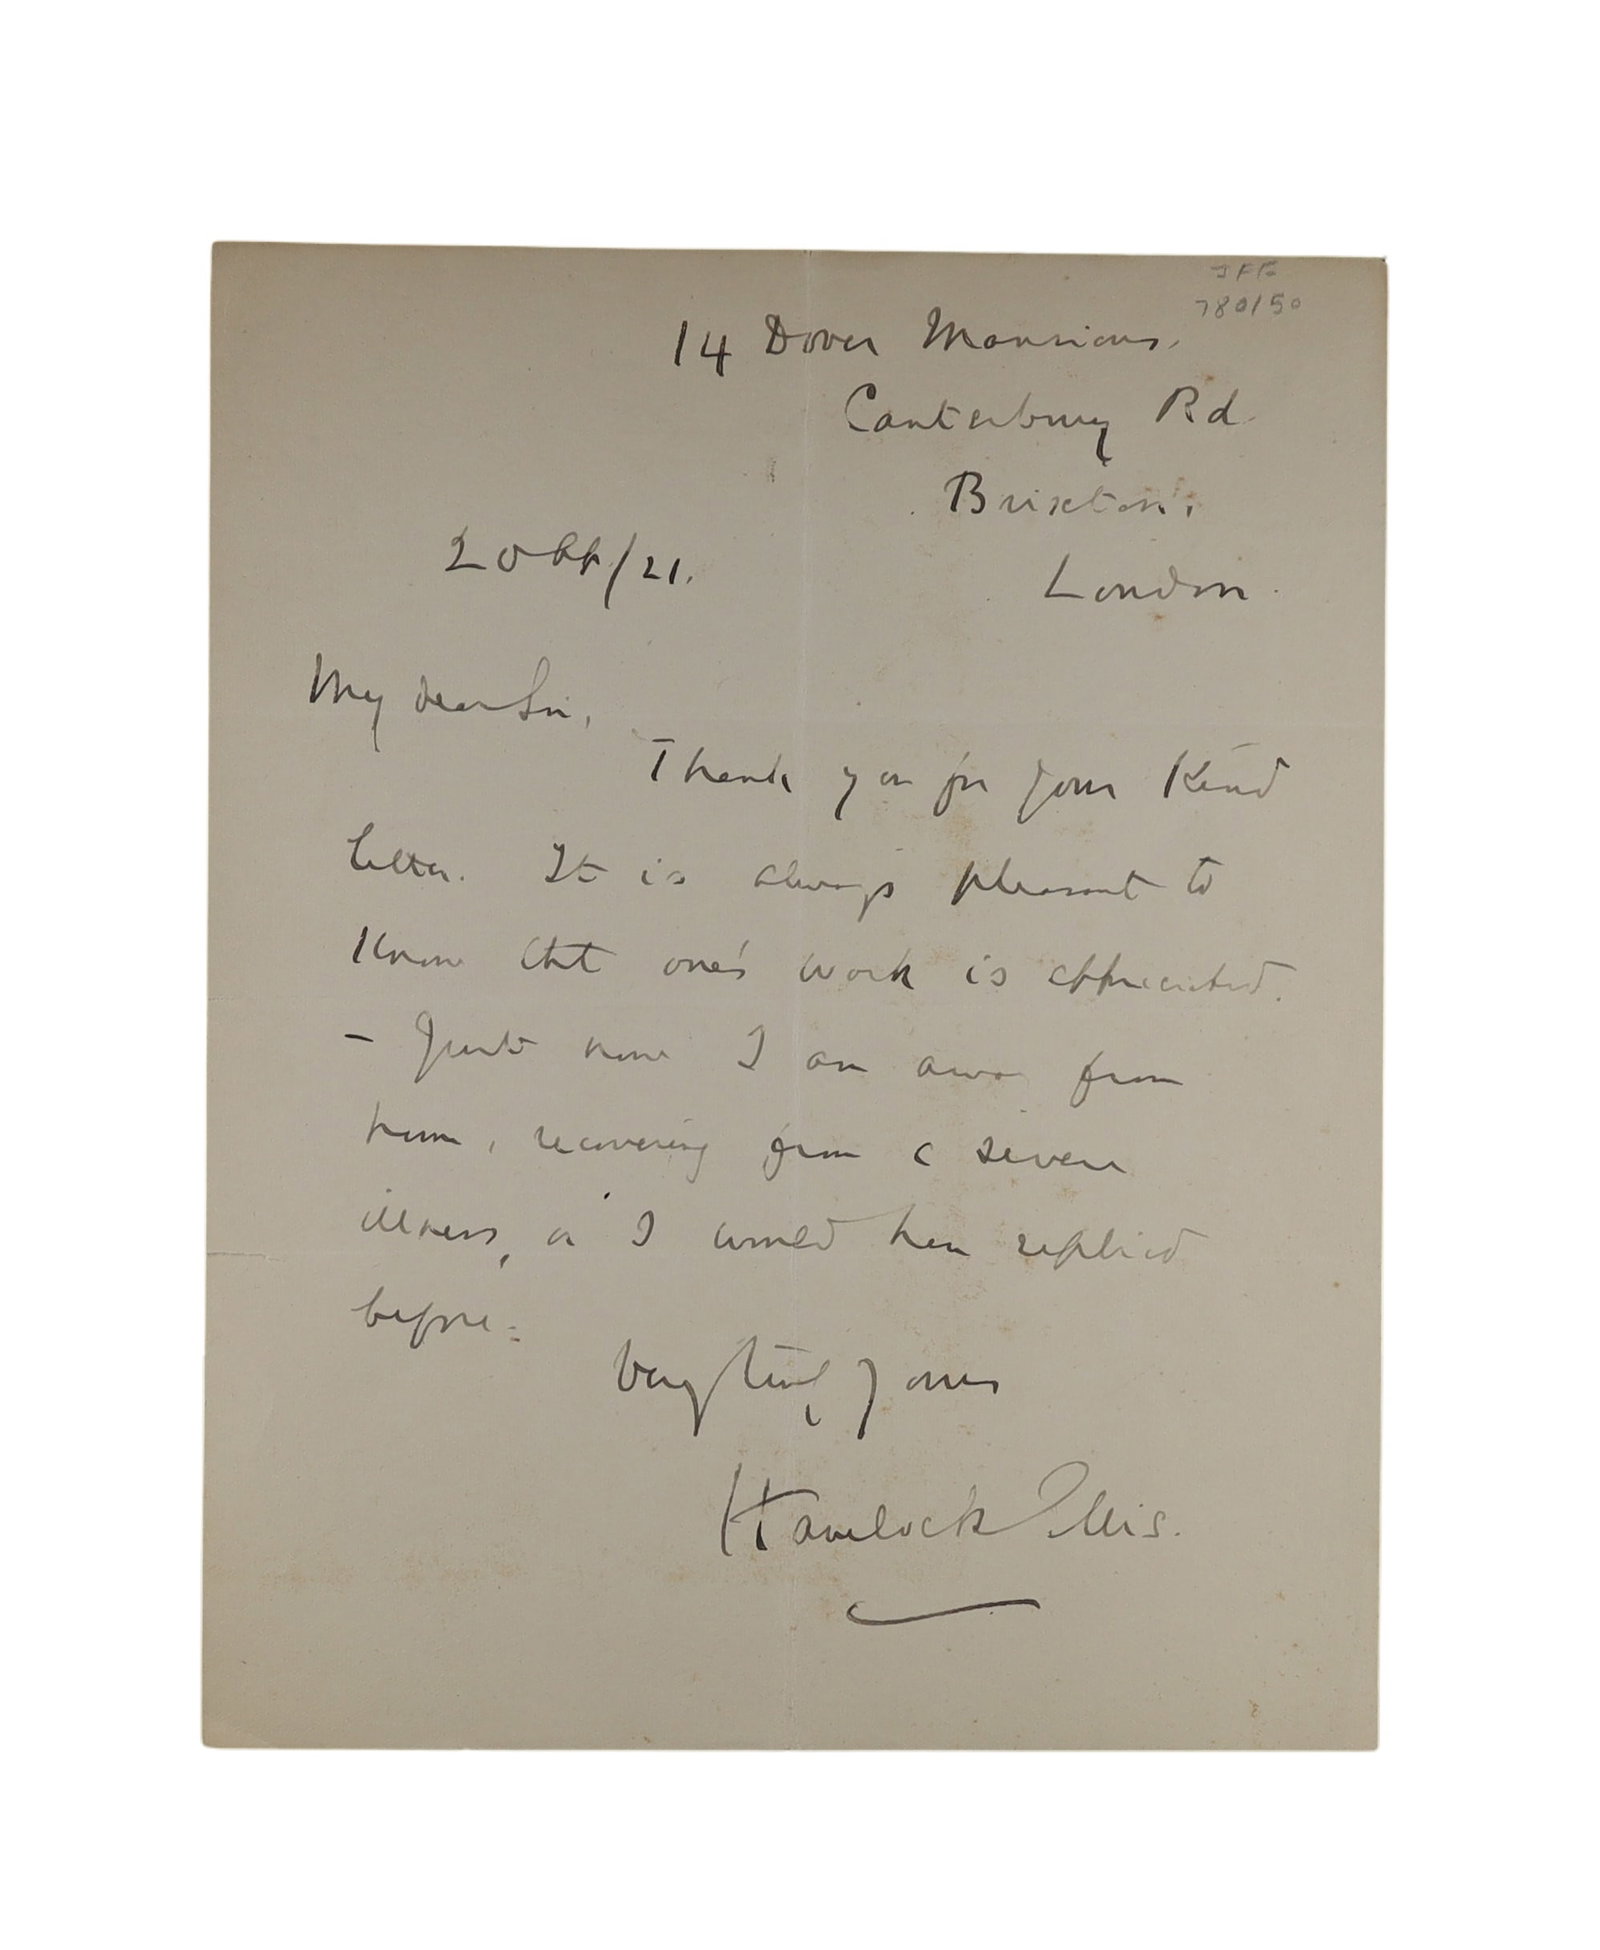 JFF
780/50
14 Dover Mansions.
Canterbury Rd
Brixton,
London.
2 Oct/21.
My dear Sir,
Thank you for your kind
letter. It is always pleasant to
know that one's work is appreciated.
– Just now I am away from
home, recovering from a severe
illness, or I would have replied
before.
Very truly yours
Havelock Ellis.